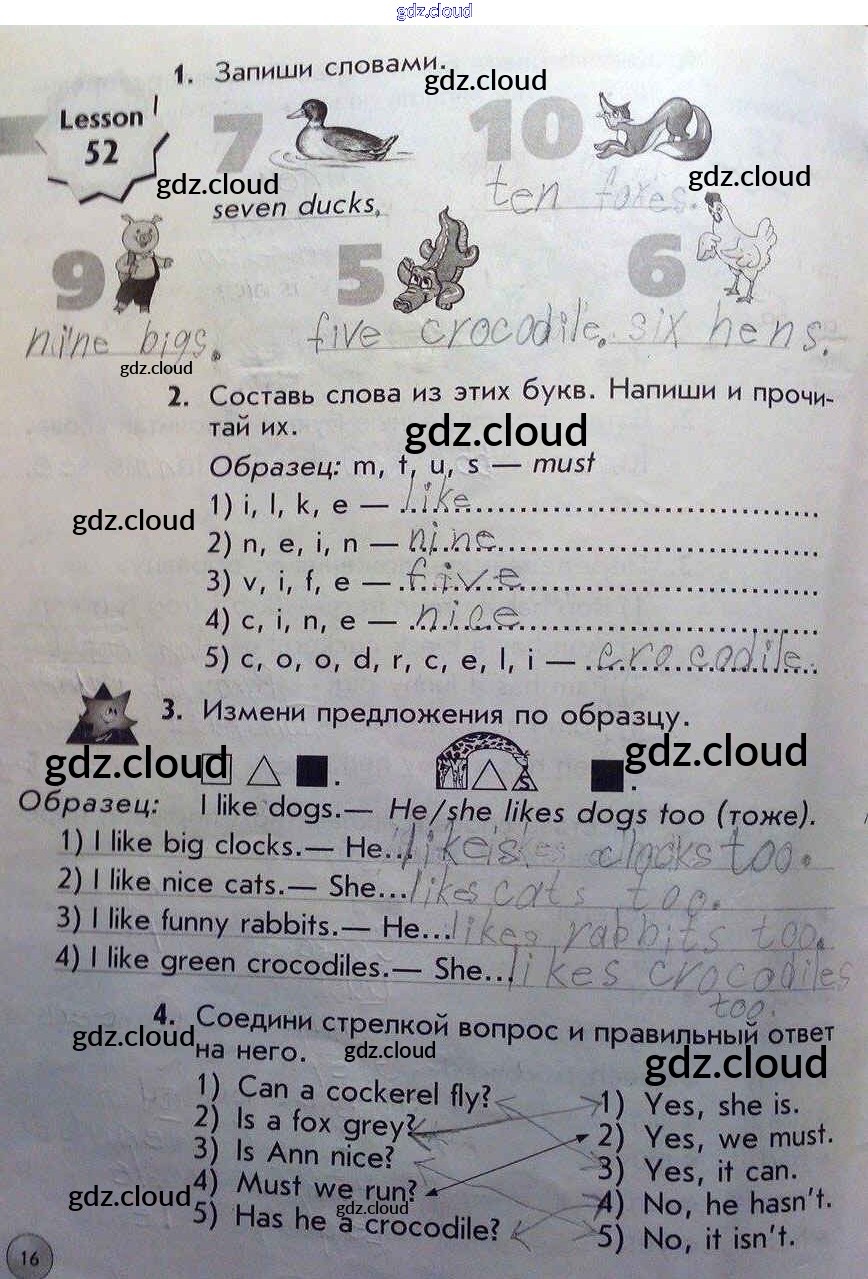 gdz.cloud
1. Запиши словами.
gdz.cloud
Lesson
52
7
10
gdz.cloud
gdz.cloud
seven ducks,
ten foxes.
9
5
6
nine bigs.
five crocodile.
six hens.
gdz.cloud
2. Составь слова из этих букв. Напиши и прочи-
тай их.
gdz.cloud
Образец: m, t, u, s — must
1) i, l, k, e — like
gdz.cloud
2) n, e, i, n — nine
3) v, i, f, e — five
4) c, i, n, e — nice
5) c, o, o, d, r, c, e, l, i — crocodile
3. Измени предложения по образцу.
gdz.cloud
gdz.cloud
Образец: I like dogs.— He/she likes dogs too (тоже).
1) I like big clocks.— He... likes clocks too.
2) I like nice cats.— She... likes cats too.
3) I like funny rabbits.— He... likes rabbits too.
4) I like green crocodiles.— She... likes crocodiles
too.
4. Соедини стрелкой вопрос и правильный ответ
на него.
gdz.cloud
gdz.cloud
gdz.cloud
1) Can a cockerel fly?
1) Yes, she is.
2) Is a fox grey?
2) Yes, we must.
3) Is Ann nice?
3) Yes, it can.
4) Must we run?
4) No, he hasn't.
5) Has he a crocodile?
5) No, it isn't.
gdz.cloud
gdz.cloud
16